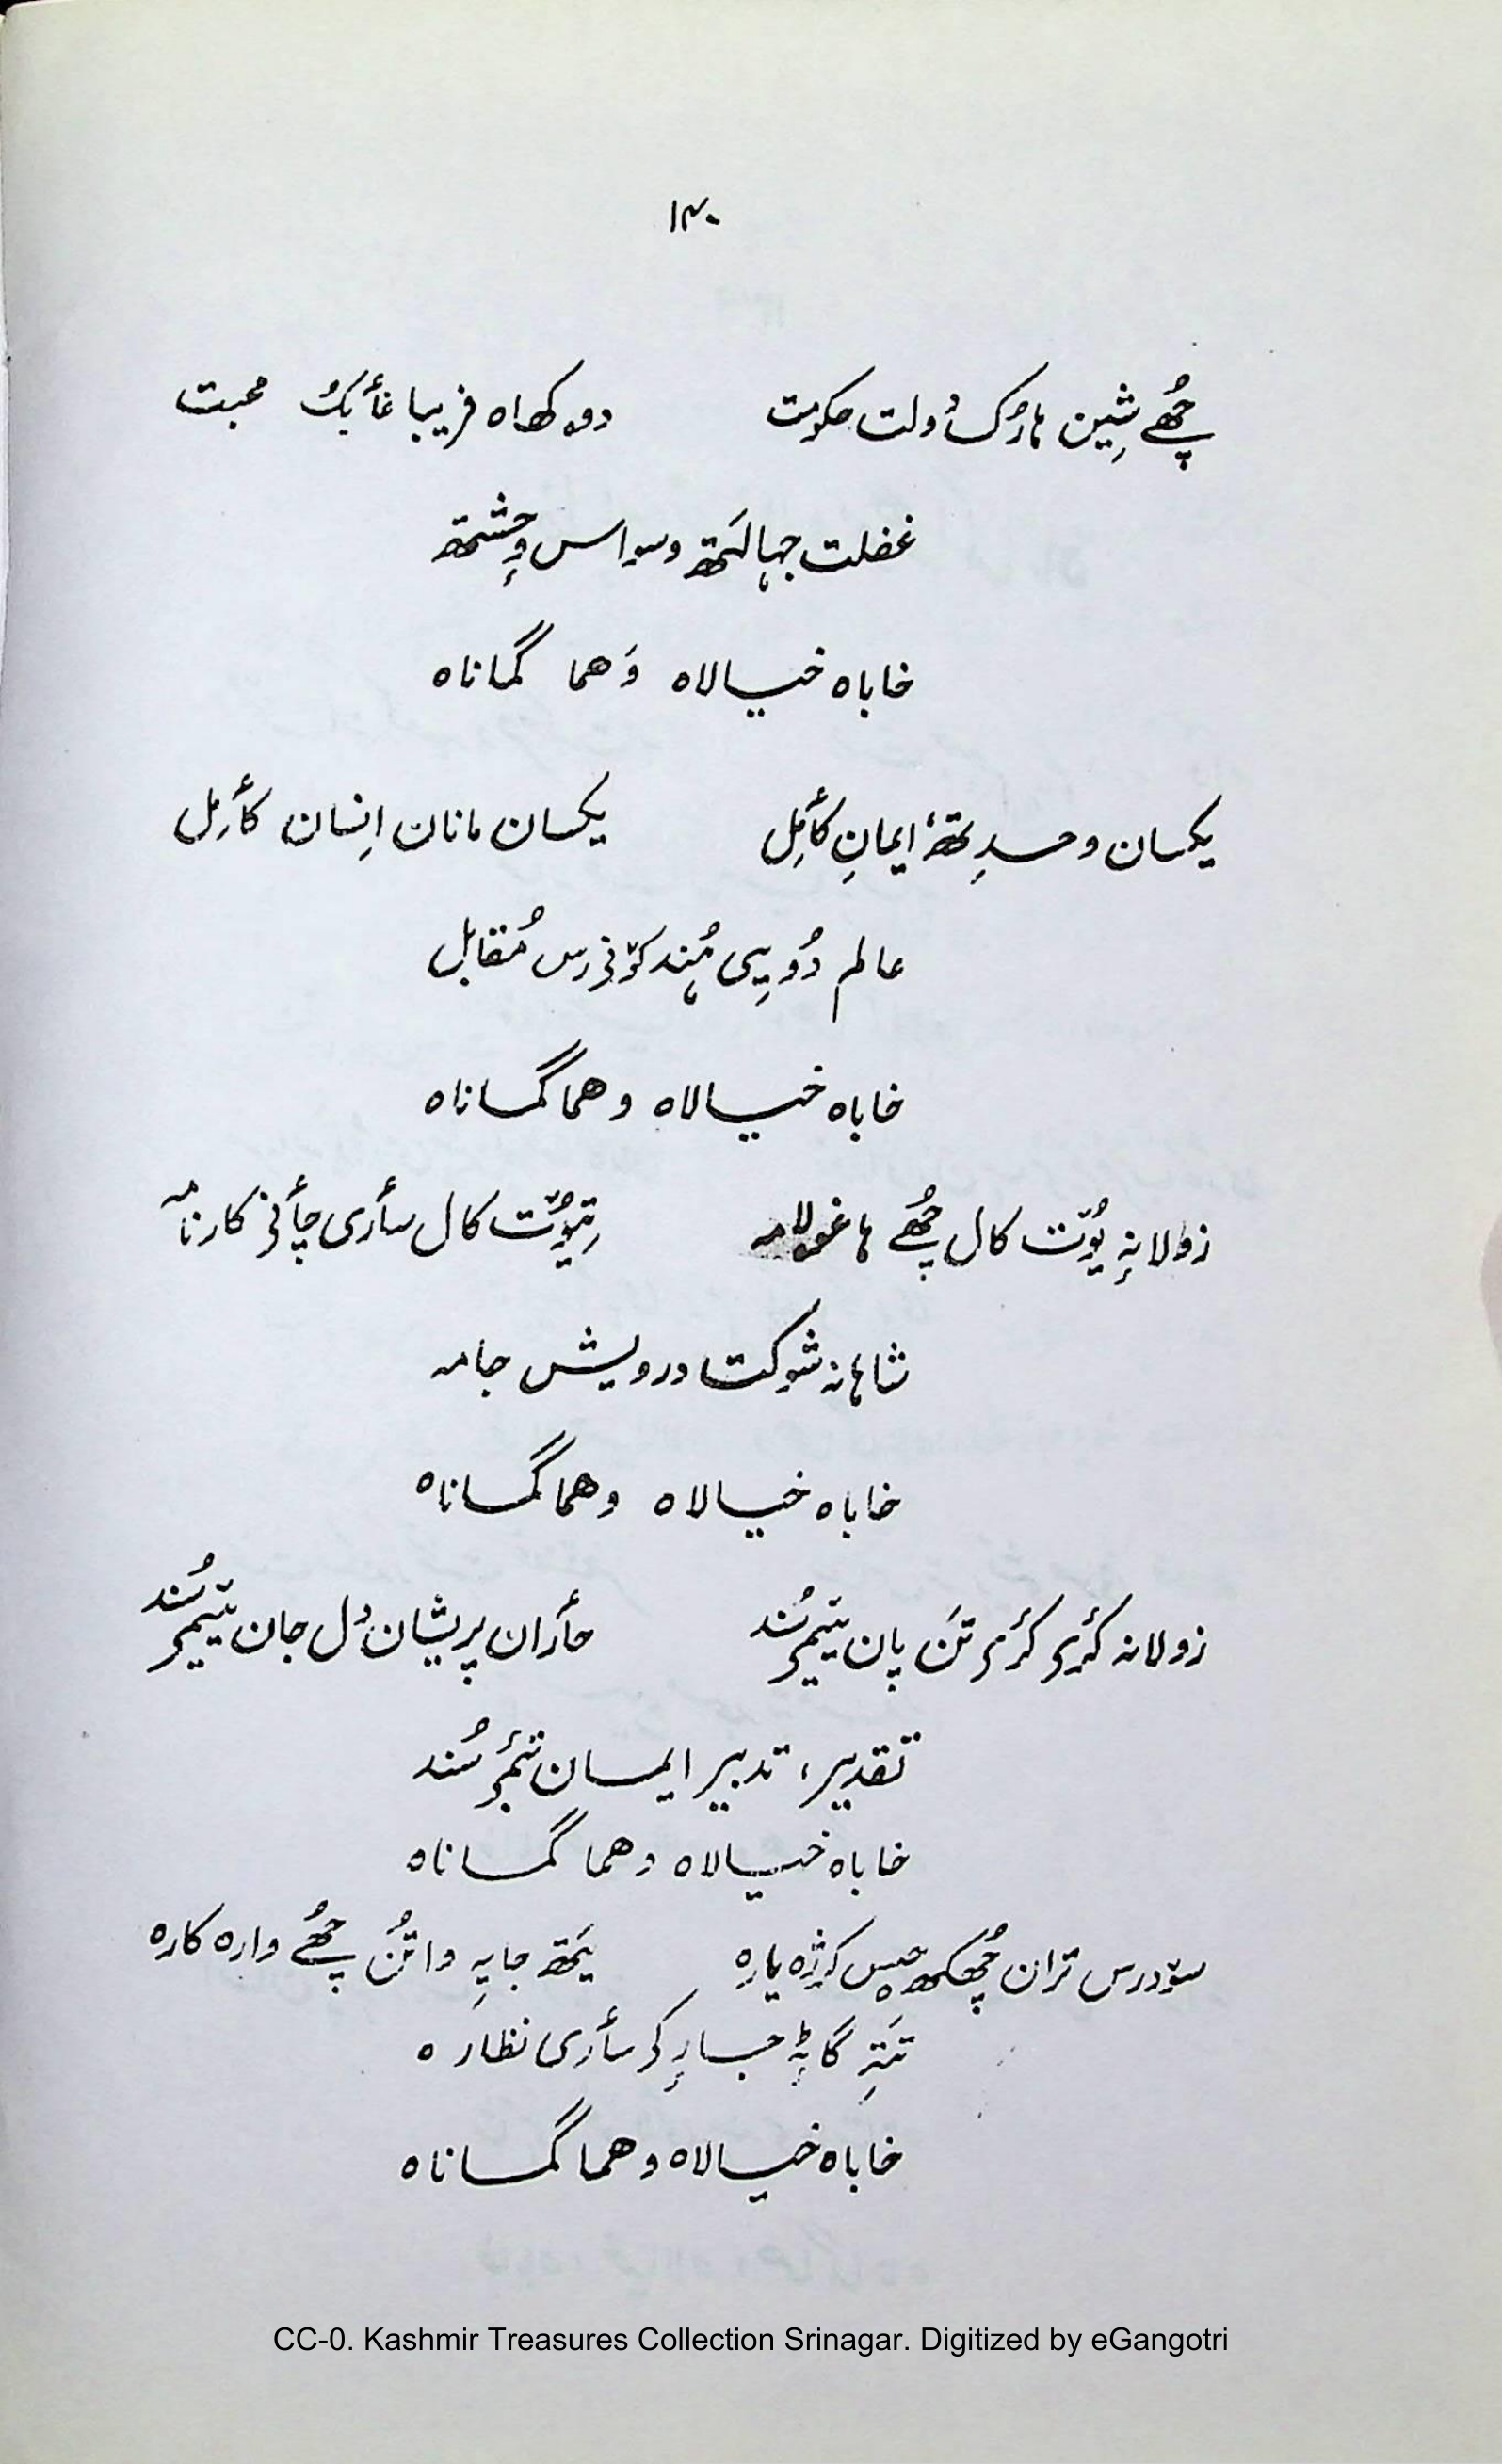 ۱۴۰
چُھے شِین ہارُک دولت حکومت دوکھاہ فریبا غأبُک محبت
غفلت جہالَتھ وسواس وِچشتھ
خاباہ خیالاہ وَھما گماناہ
یکسان وحدتھ ایمانِ کأمِل یکسان مانان اِنسان کأمِل
عالم دُویی ہُند مُقابل
خاباہ خیالاہ وھما گماناہ
زولانہٕ یوٗت کال چُھے ہا غولامہ تِیوٗت کال سأری چأنی کارنامہ
شاہانہ شوکت درویش جامہ
خاباہ خیالاہ وھما گماناہ
زولانہ کٔری کٔری تَن پان تٔمی سُند حأران پریشان دِل جان تٔمی سُند
تقدیر، تدبیر ایمان تٔمی سُند
خاباہ خیالاہ وھما گماناہ
سۆدرس تران چُھکھ یارہ یَتھ جایہِ واتُن چُھے وارہ کارہ
تَتہِ گاٹہٕ جارٕ کی سأری نظارہ
خاباہ خیالاہ وھما گماناہ
CC-0. Kashmir Treasures Collection Srinagar. Digitized by eGangotri